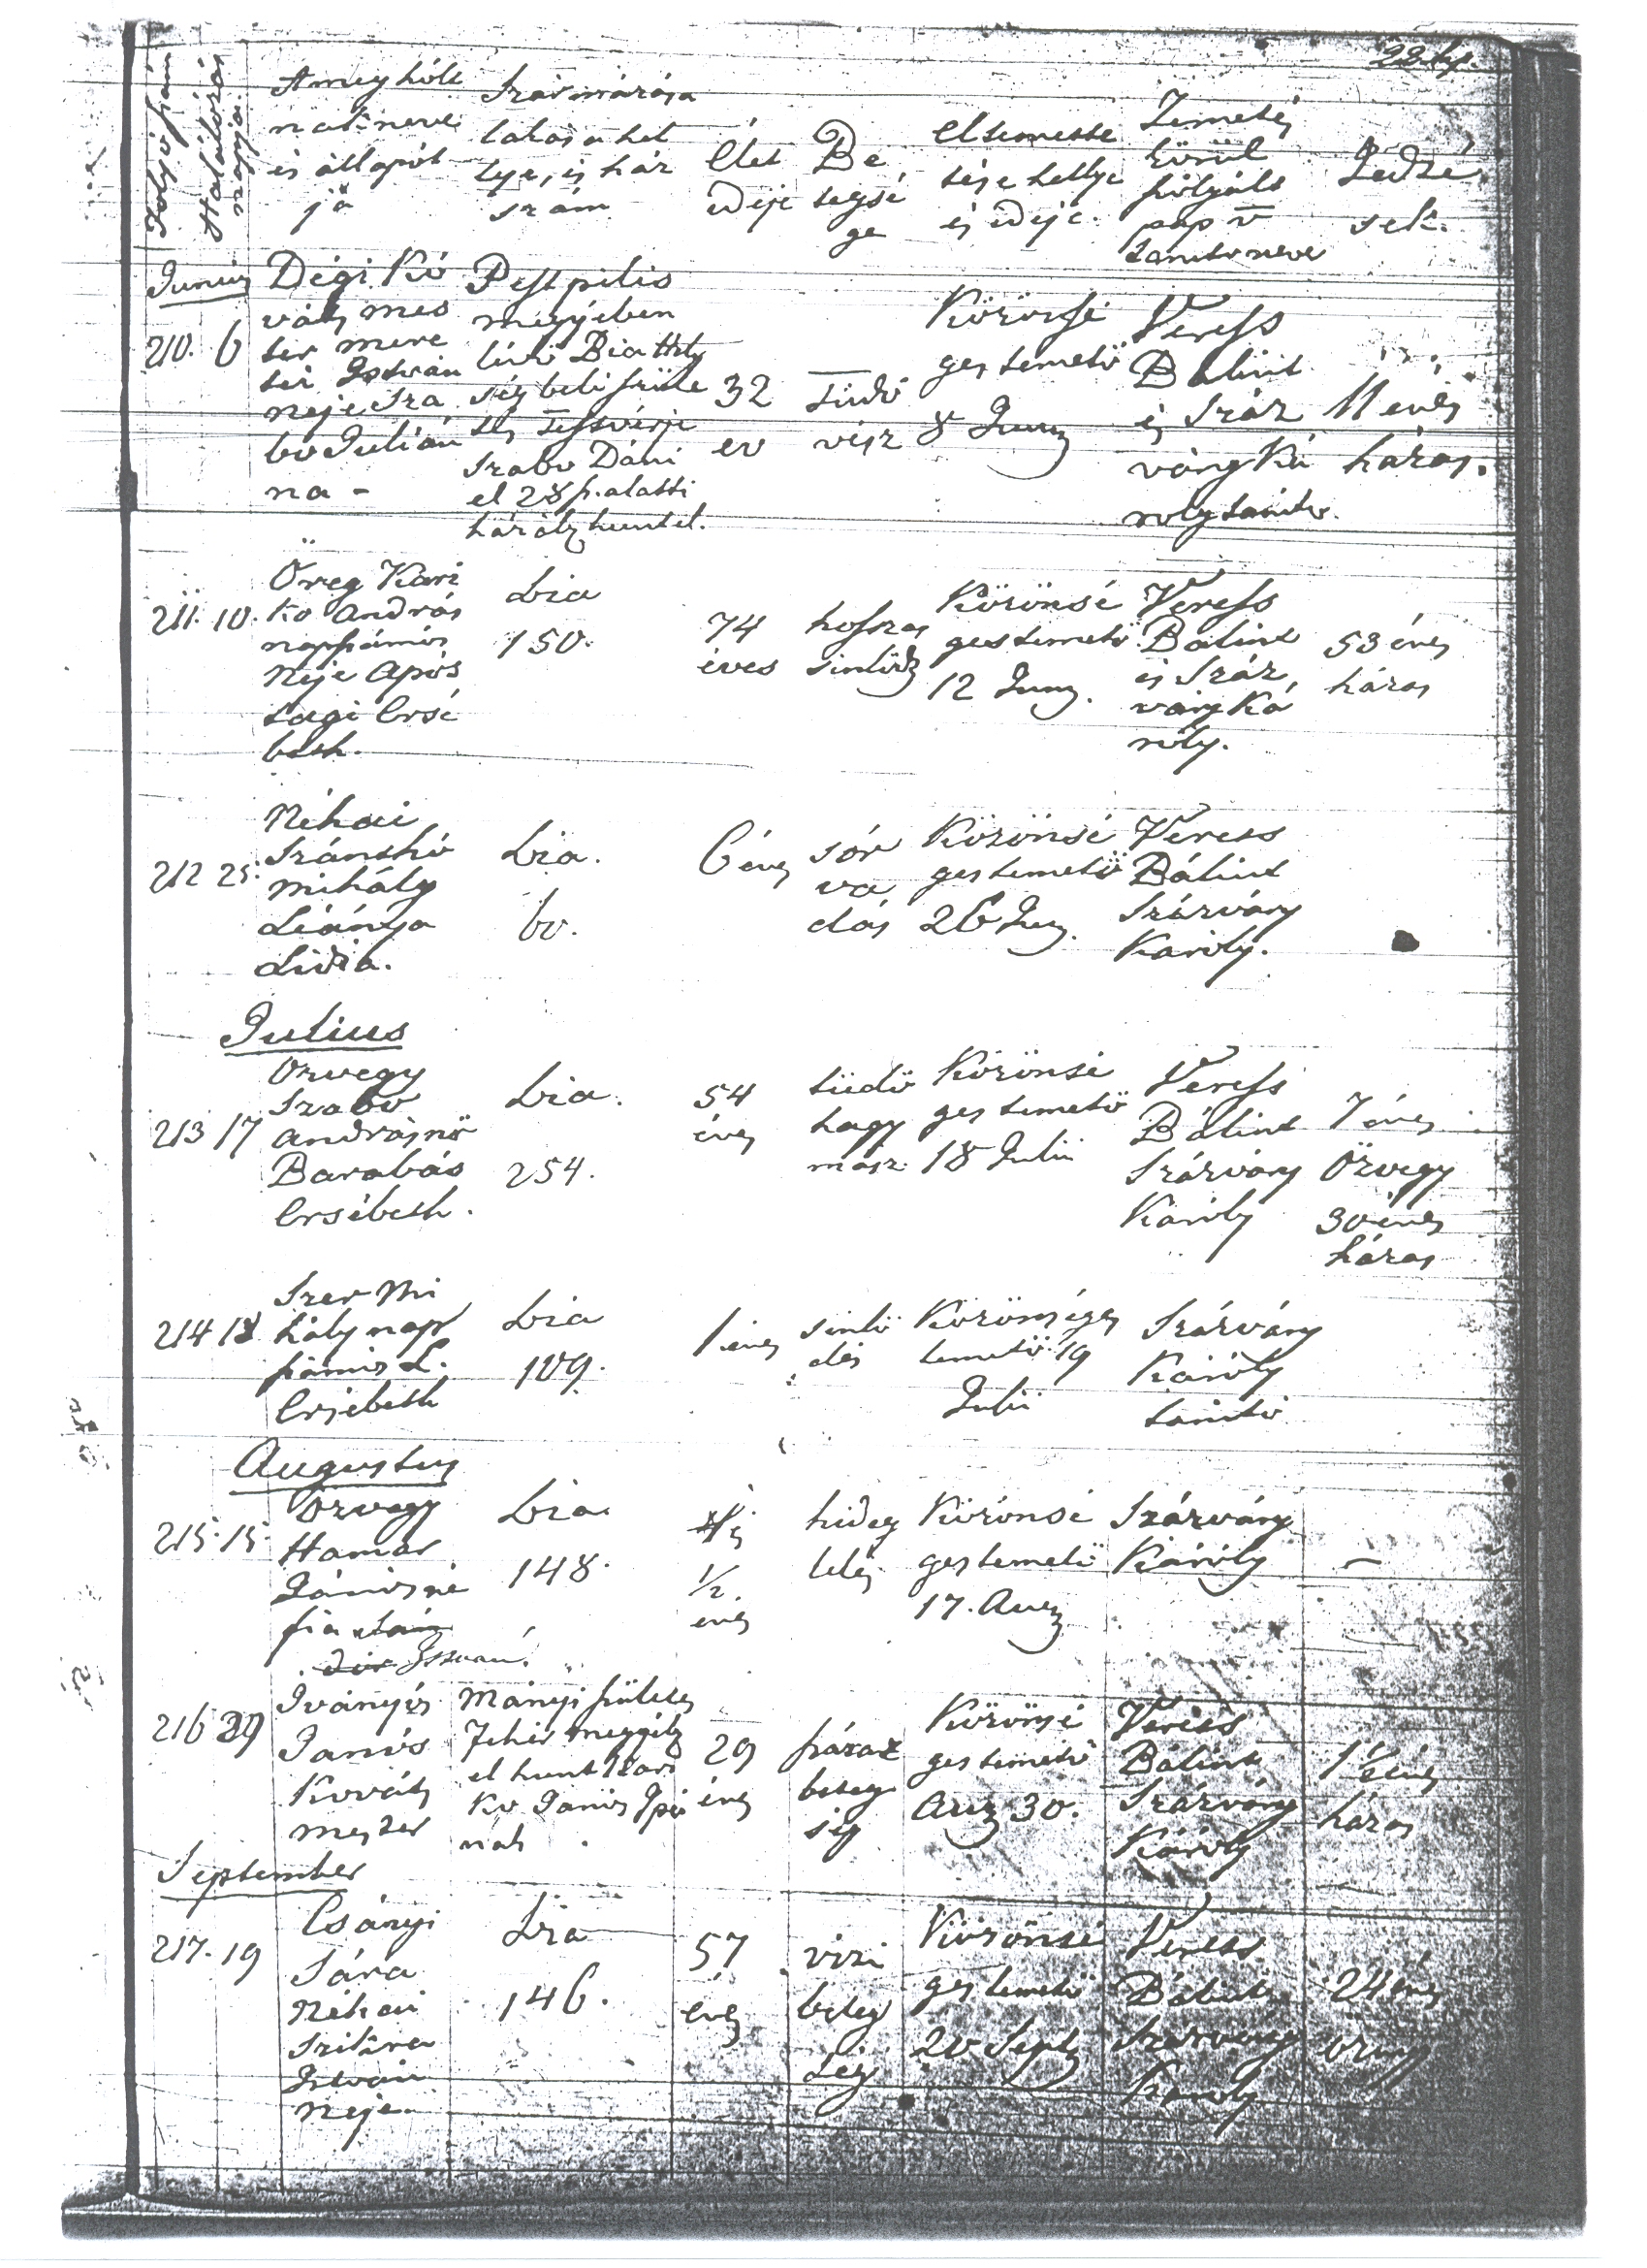 22 lap.
Folyó szám
Halálozás
napja
A meg hólt
nak neve
és állapót
ja
Származása
lakása hel
lye, és ház
szám
Élet
ideje
Be
tegsé
ge
Eltemette
tése hellye
és ideje.
Temetés
körül
szólgáló
pap v
tanito neve
Jedzé
sek.
Junius
210. 6
Dégi Ko
váts mes
ter mere
tei István
neje Sza
bo Julián
na -
Pest pilis
megyében
lévő Bia Hely
ség beli szüle
tés Testvérje
Szabo Dáni
el 28 sz. alatti
házánál hunt el.
32
ev
Tüdő
vész
Közönsé
ges temető
8 Juny
Veress
Bálint
és Száz
vány Ká
roly tanító.
11 éves
házas.
211. 10.
Öreg Kari
ko András
napszámos
Neje Após
tagi Ersé
beth.
Bia
150.
74
éves
hosszas
sinlődés
Közönsé
ges temető
12 Juny.
Veress
Bálint
és Száz,
vány Ká
roly.
53 éves
házas
212 25.
Néhai
Szánthó
Mihály
Leánya
Lidia.
Bia.
60.
6 éves
sór
va
dás
Közönsé
ges temető
26 Juny.
Veress
Bálint
Százvány
Károly.
Julius
213 17
Özvegy
Szabo
Andrásnő
Barabás
Ersébeth.
Bia.
254.
54
éves
tüdő
hagy
máz
Közönsé
ges temető
18 Julii
Veress
Bálint
Százvány
Károly
7 éves
Özvegy
30 éves
házas
214 18
Szer Mi
hály nap
számos L.
Ersébeth
Bia
109.
1 éves
sinlő
dés
Közönséges
temető 19
Julii
Százvány
Károly
tanító
Augustus
215. 15.
Özvegy
Hamar
Jánosné
fia
István.
Bia.
148.
1/2.
éves
hideg
lelés
Közönsé
ges temető
17. Aug
Százvány
Károly
—
216 29
Iványos
János
Kováts
mester
Mányi születés
Fehér megyéb
el hunt Kari
ko János Ipá
nak
29
éves
száraz
beteg
ség
Közönsé
ges temető
Aug 30.
Veress
Bálint
Százvány
Károly
1 1/2 éves
házas
September
217. 19
Csányi
Sára
Néhai
Szitára
István
neje
Bia
146.
57
éves
vizi
beteg
ség
Közönsé
ges temető
20 Septb
Veress
Bálint
Százvány
Károly
24 éves
özvegy